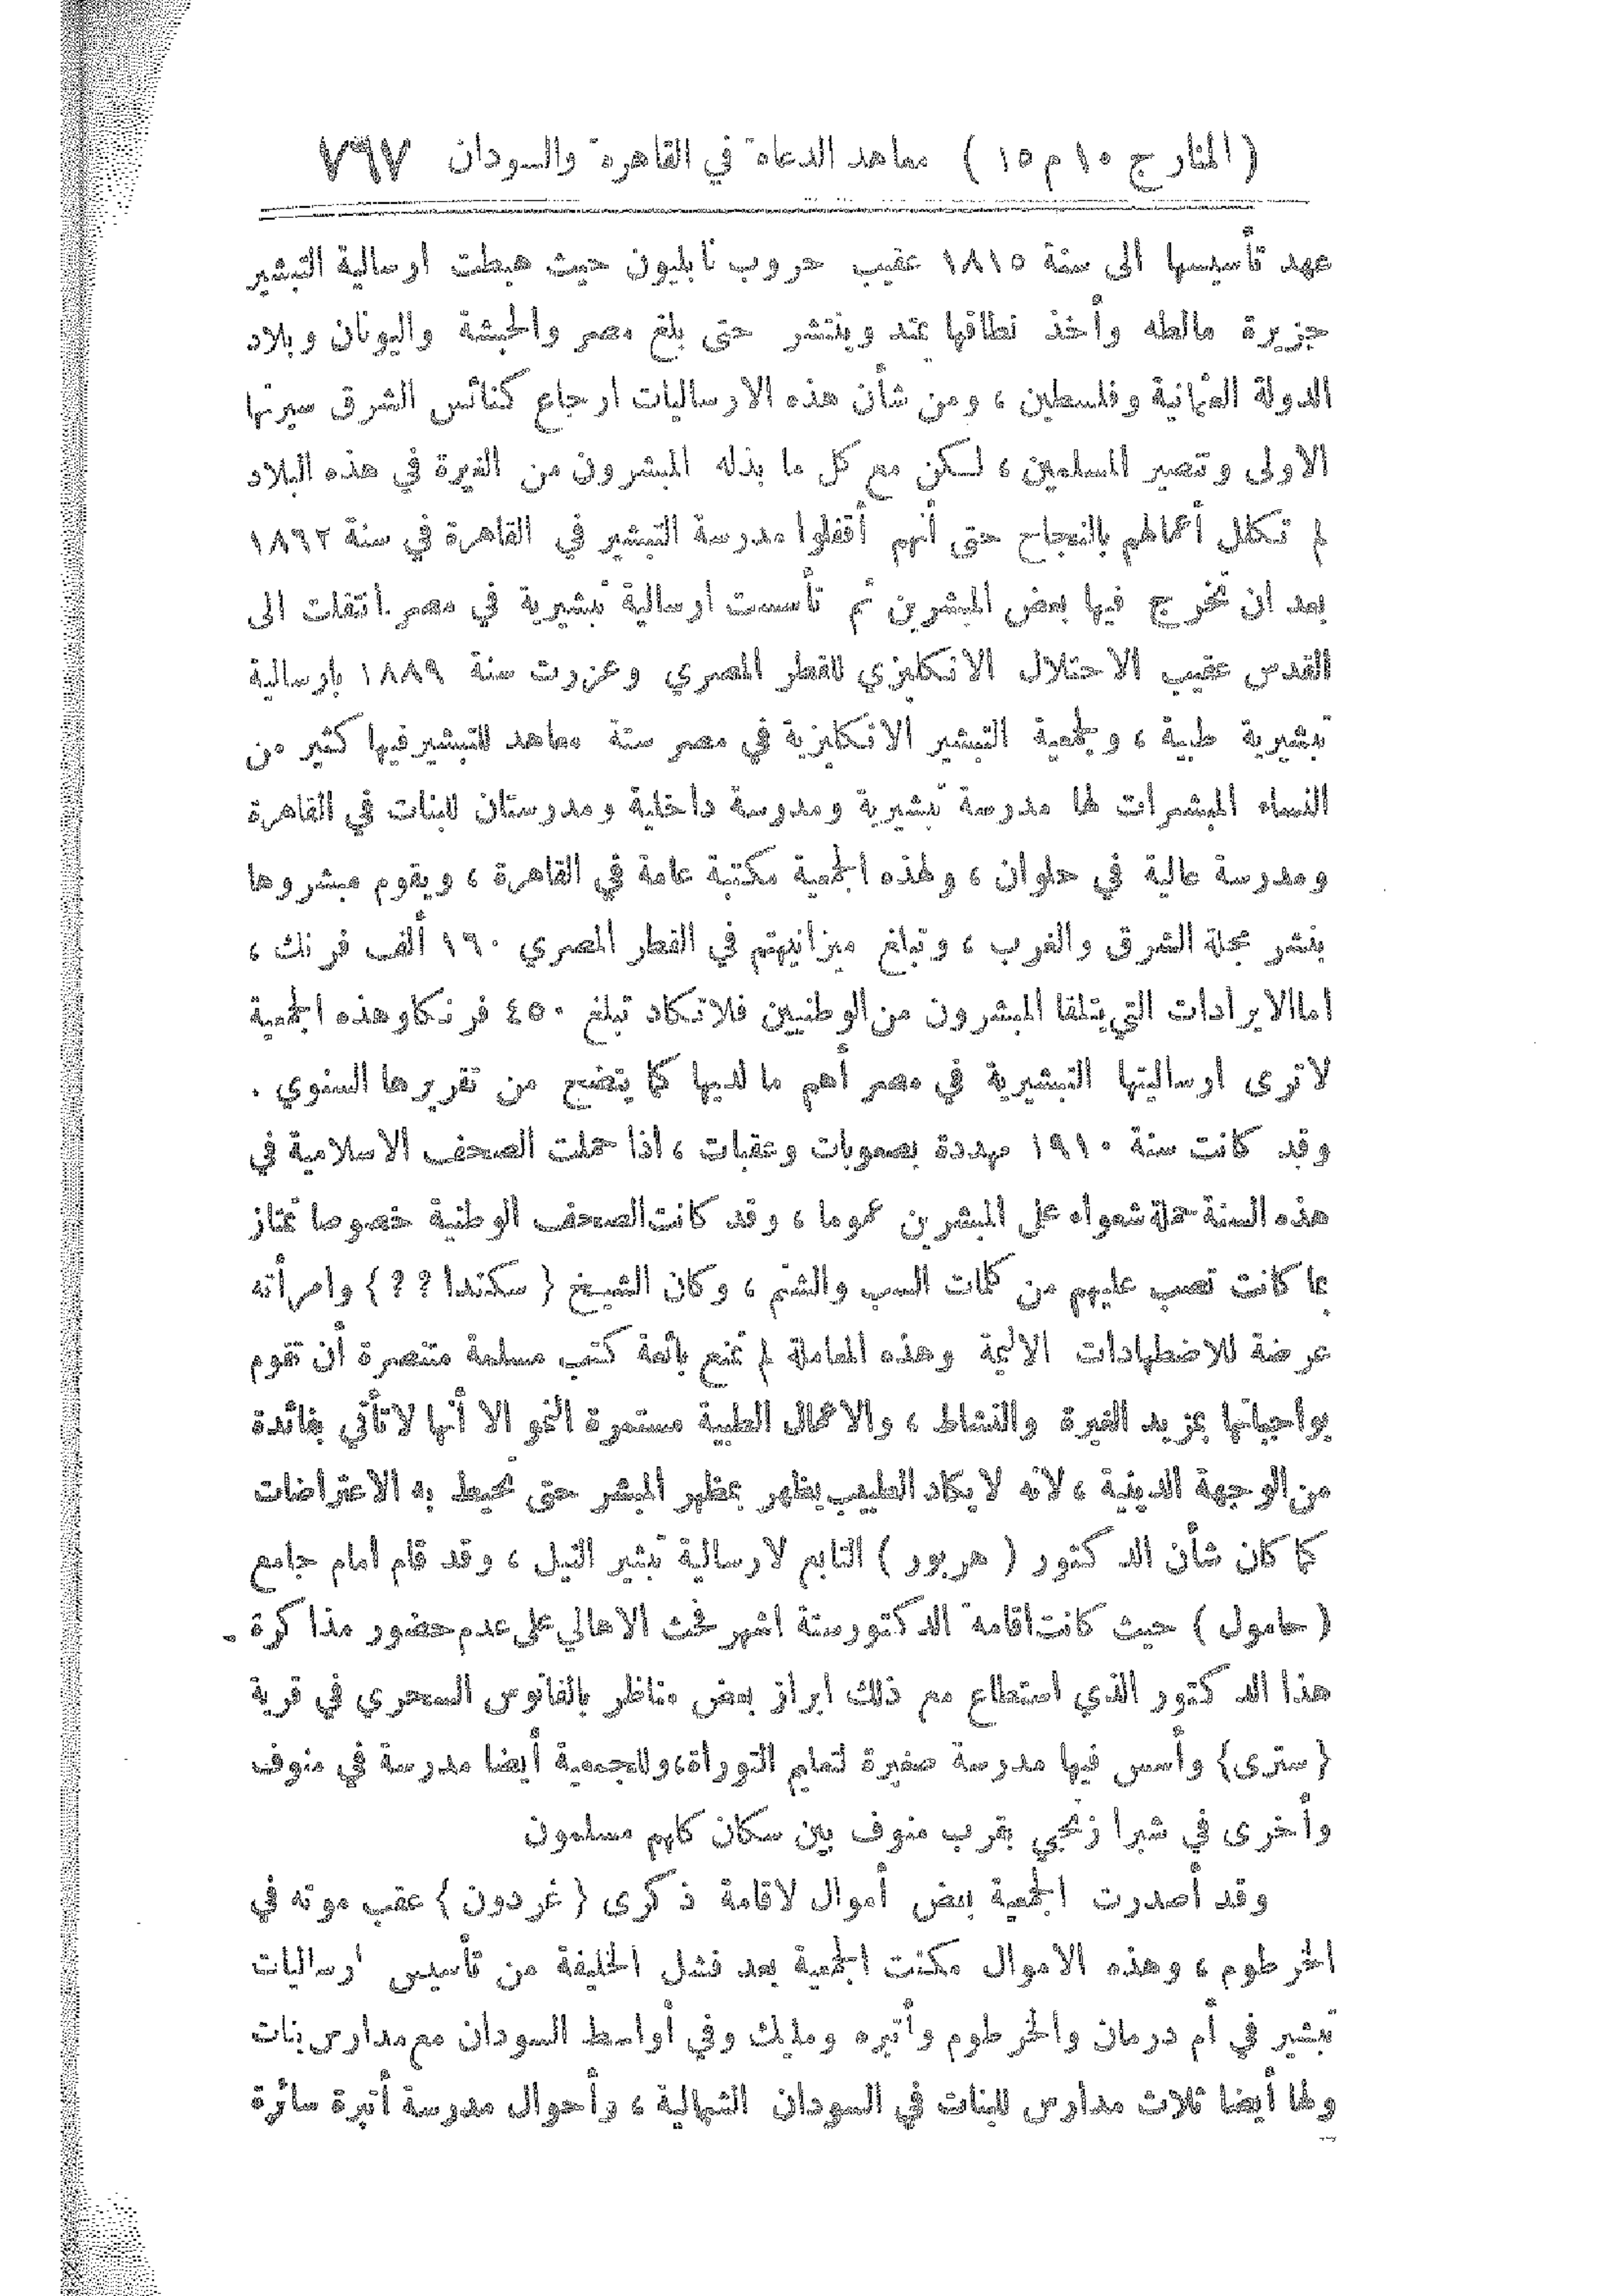 ( المنار ج ١٠ م ١٥ ) معاهد الدعاة في القاهرة والسودان ٧٩٧
عهد تأسيسها الى سنة ١٨١٥ عقيب حروب نابليون حيث هبطت ارسالية التبشير
جزيرة مالطه وأخذ نطاقها يمتد وينتشر حتى بلغ مصر والحبشة واليونان وبلاد
الدولة العثمانية وفلسطين ، ومن شأن هذه الارساليات ارجاع كنائس الشرق سيرتها
الاولى وتنصير المسلمين ، لكن مع كل ما بذله المبشرون من الغيرة في هذه البلاد
لم تكلل أعمالهم بالنجاح حتى أنهم أقفلوا مدرسة التبشير في القاهرة في سنة ١٨٦٢
بعد ان تخرج فيها بعض المبشرين ثم تأسست ارسالية تبشيرية في مصر انتقلت الى
القدس عقيب الاحتلال الانكليزي للقطر المصري وعززت سنة ١٨٨٩ بارسالية
تبشيرية طبية ، ولجمعية التبشير الانكليزية في مصر ستة معاهد للتبشير فيها كثير من
النساء المبشرات لها مدرسة تبشيرية ومدرسة داخلية ومدرستان للبنات في القاهرة
ومدرسة عالية في حلوان ، ولهذه الجمعية مكتبة عامة في القاهرة ، ويقوم مبشروها
بنشر مجلة الشرق والغرب ، وتبلغ ميزانيتهم في القطر المصري ١٦٠ ألف فرنك ،
اما الايرادات التي يتلقا المبشرون من الوطنيين فلاتكاد تبلغ ٤٥٠ فرنكا وهذه الجمعية
لاترى ارساليتها التبشيرية في مصر أهم ما لديها كما يتضح من تقريرها السنوي .
وقد كانت سنة ١٩١٠ مهددة بصعوبات وعقبات ، اذا حملت الصحف الاسلامية في
هذه السنة حملة شعواء على المبشرين عموما ، وقد كانت الصحف الوطنية خصوصا تمتاز
بما كانت تصب عليهم من كلمات السب والشتم ، وكان الشيخ { سكندا ؟ ؟ } وامرأته
عرضة للاضطهادات الاليمة وهذه المعاملة لم تمنع بائعة كتب مسلمة متنصرة أن تقوم
بواجباتها بمزيد الغيرة والنشاط ، والاعمال الطبية مستمرة النمو الا أنها لاتأتي بفائدة
من الوجهة الدينية ، لانه لا يكاد الطبيب يظهر بمظهر المبشر حتى تحيط به الاعتراضات
كما كان شأن الدكتور ( هربور ) التابع لارسالية تبشير النيل ، وقد قام امام جامع
( حامول ) حيث كانت اقامة الدكتور ستة اشهر فحث الاهالي على عدم حضور مذاكرة
هذا الدكتور الذي استطاع مع ذلك ابراز بعض مناظر بالفانوس السحري في قرية
{ سترى } وأسس فيها مدرسة صغيرة لتعليم التوراة، وللجمعية أيضا مدرسة في منوف
وأخرى في شبرا زنجي بقرب منوف بين سكان كلهم مسلمون
وقد أصدرت الجمعية بعض أموال لاقامة ذكرى { غردون } عقب موته في
الخرطوم ، وهذه الاموال مكنت الجمعية بعد فشل الخليفة من تأسيس ارساليات
تبشير في أم درمان والخرطوم وأتبره ومليك وفي أواسط السودان مع مدارس بنات
ولها أيضا ثلاث مدارس للبنات في السودان الشمالية ، وأحوال مدرسة أتبرة سائرة